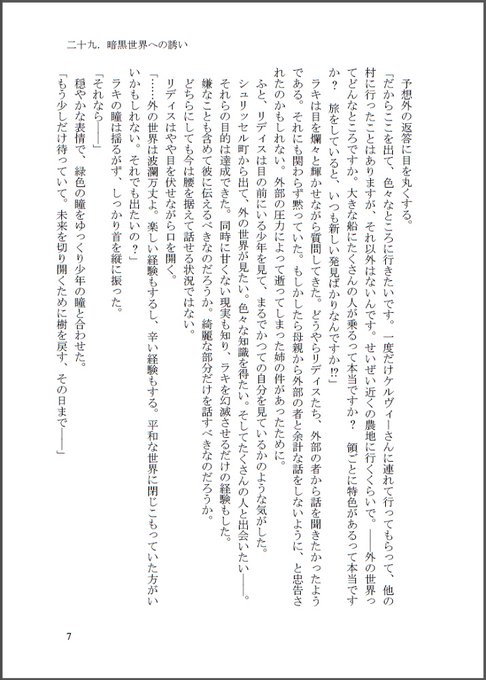 二十九．暗黒世界への誘い
予想外の返答に目を丸くする。
「だからここを出て、色々なところに行きたいです。一度だけケルヴィーさんに連れて行ってもらって、他の
村に行ったことはありますが、それ以外はないんです。せいぜい近くの農地に行くくらいで。――外の世界っ
てどんなところですか。大きな船にたくさんの人が乗るって本当ですか？　領ごとに特色があるって本当です
か？　旅をしていると、いつも新しい発見ばかりなんですか!?」
ラキは目を爛々と輝かせながら質問してきた。どうやらリディスたち、外部の者から話を聞きたかったよう
である。それにも関わらず黙っていた。もしかしたら母親から外部の者と余計な話をしないように、と忠告さ
れたのかもしれない。外部の圧力によって逝ってしまった姉の件があったために。
ふと、リディスは目の前にいる少年を見て、まるでかつての自分を見ているかのような気がした。
シュリッセル町から出て、外の世界が見たい。色々な知識を得たい。そしてたくさんの人と出会いたい――。
それらの目的は達成できた。同時に甘くない現実も知り、ラキを幻滅させるだけの経験もした。
嫌なことも含めて彼に伝えるべきなのだろうか。綺麗な部分だけを話すべきなのだろうか。
どちらにしても今は腰を据えて話せる状況ではない。
リディスはやや目を伏せながら口を開く。
「……外の世界は波瀾万丈よ。楽しい経験もするし、辛い経験もする。平和な世界に閉じこもっていた方がい
いかもしれない。それでも出たいの？」
ラキの瞳は揺るがず、しっかり首を縦に振った。
「それなら――」
穏やかな表情で、緑色の瞳をゆっくり少年の瞳と合わせた。
「もう少しだけ待っていて。未来を切り開くために樹を戻す、その日まで――」
7